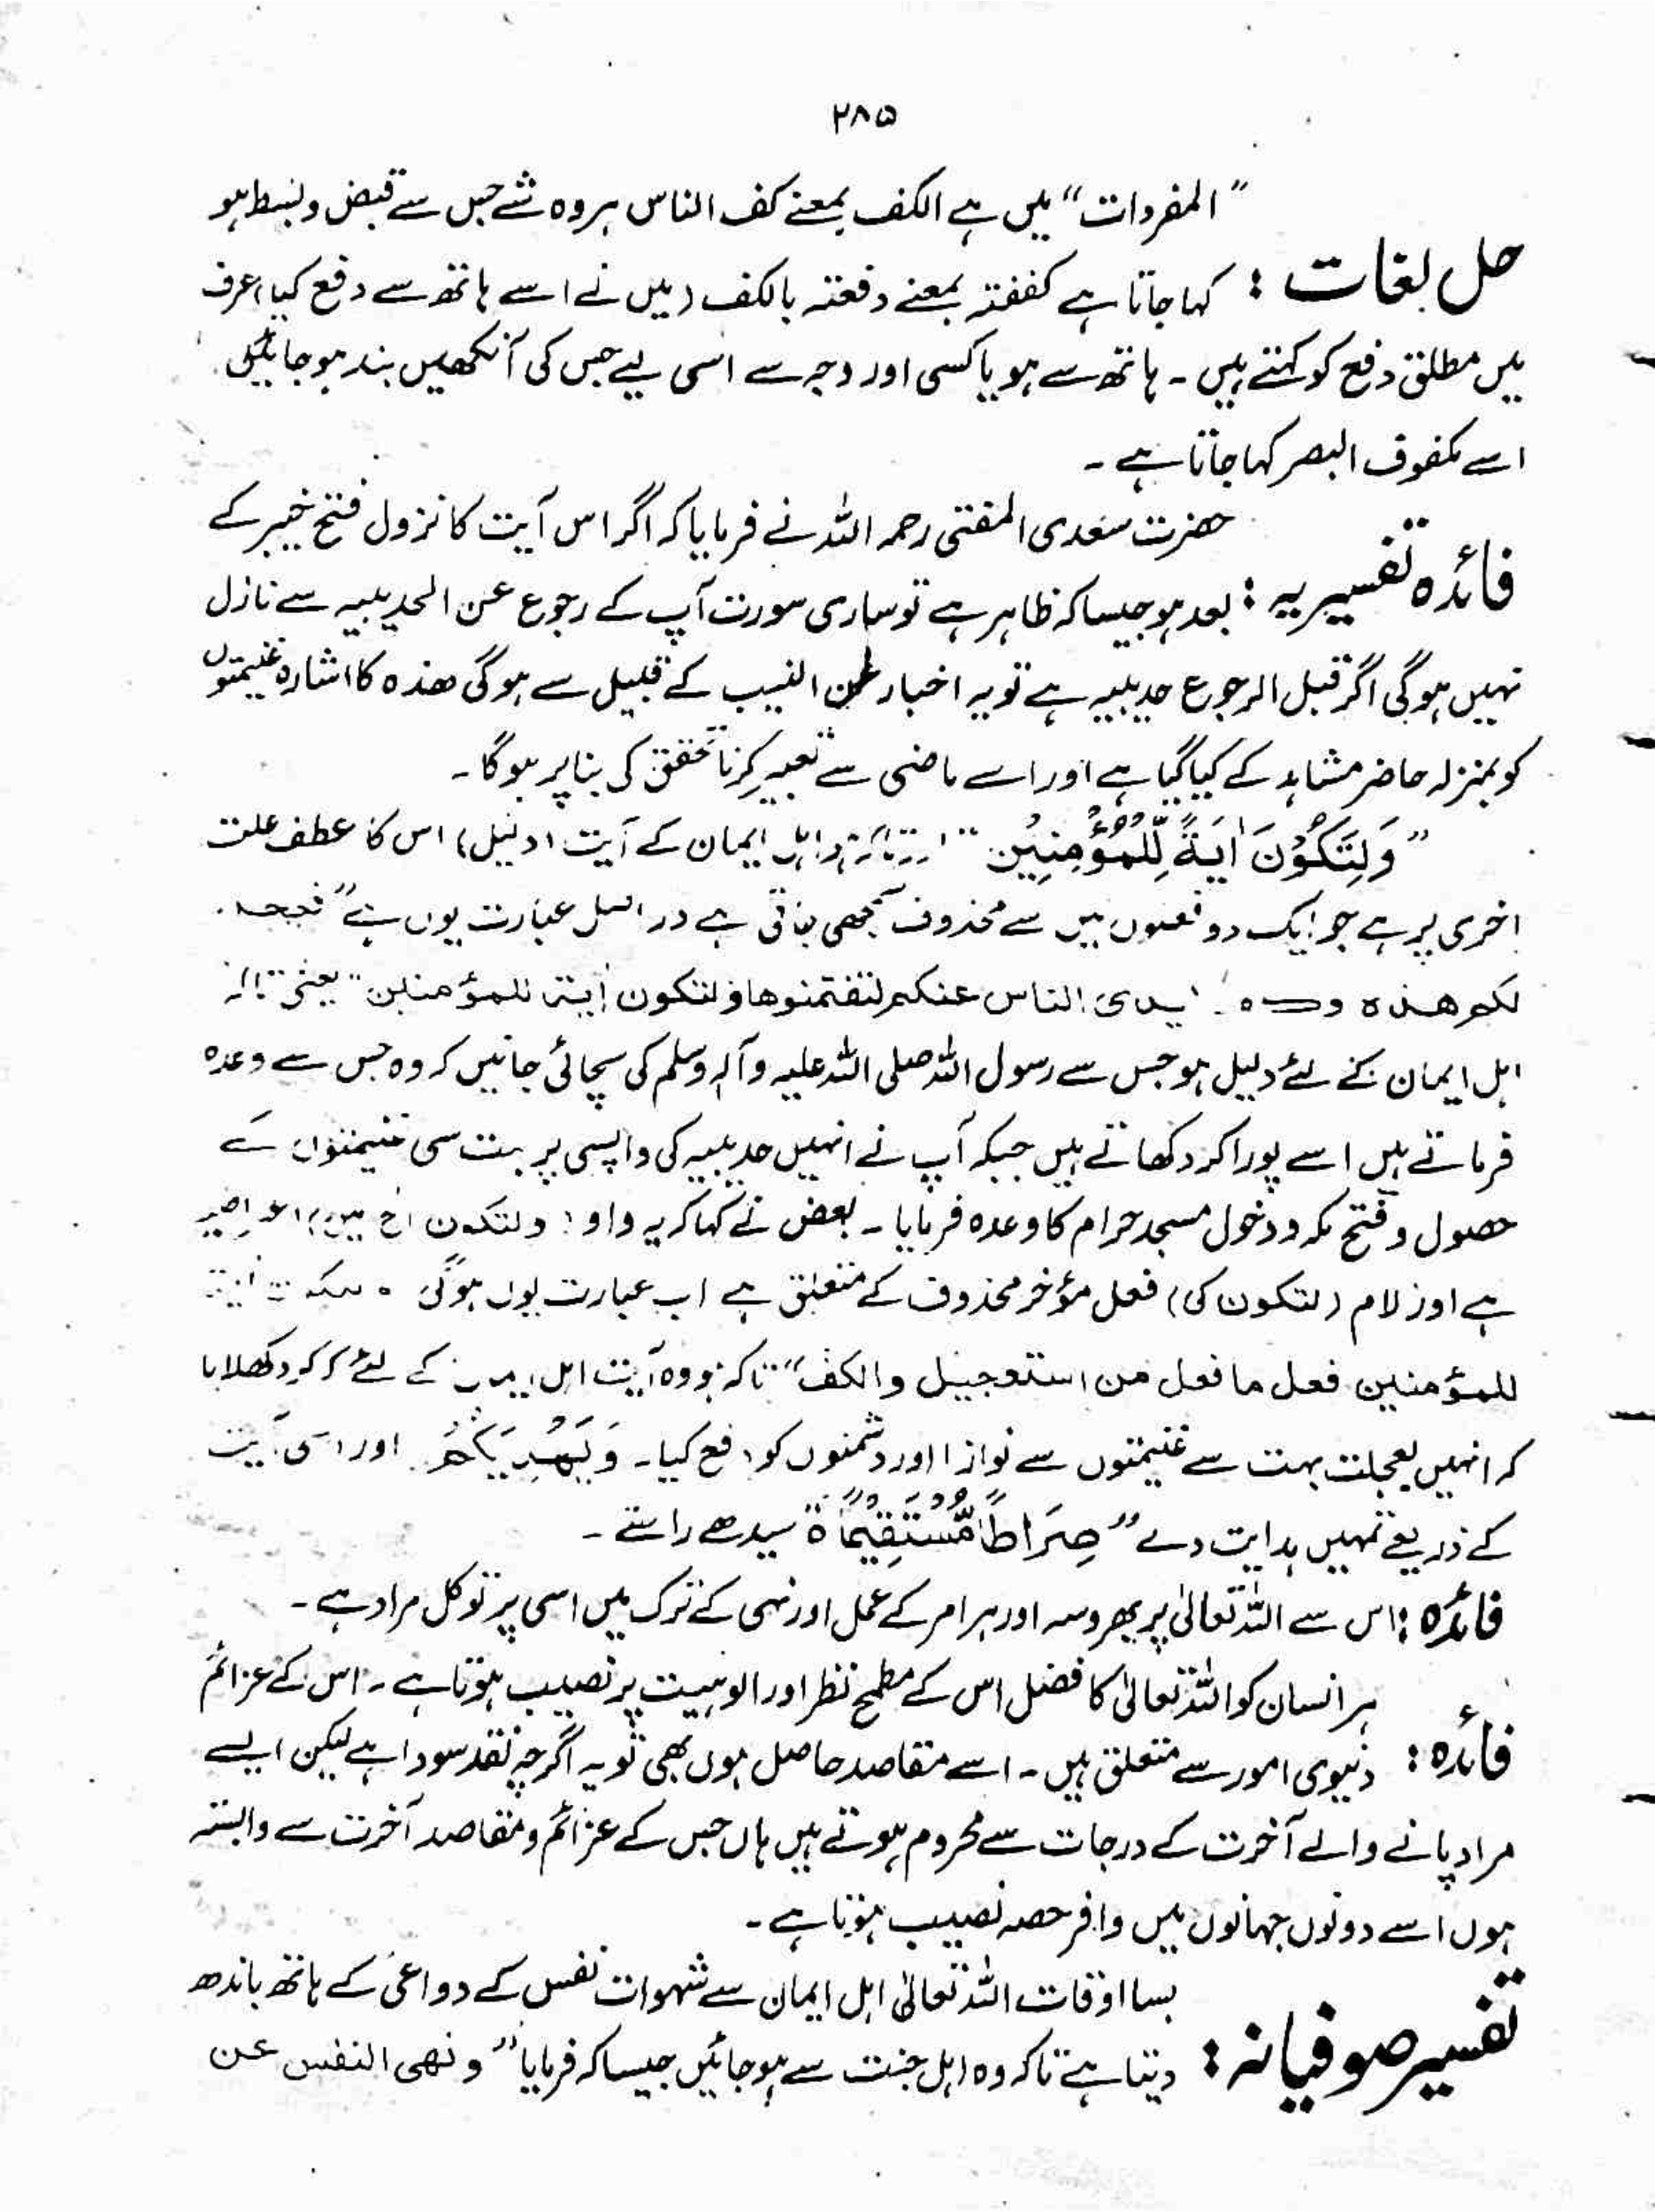 ۲۸۵
"المفردات" میں ہے الکف بمعنے کف الناس ہر وہ شے جس سے قبض و بسط ہو
حل لغات : کہا جاتا ہے کففتہ بمعنے دفعتہ بالکف (میں نے اسے ہاتھ سے دفع کیا) عرف
میں مطلق دفع کو کہتے ہیں ۔ ہاتھ سے ہو یا کسی اور وجہ سے اسی لیے جس کی آنکھیں بند ہو جائیں
اسے مکفوف البصر کہا جاتا ہے ۔
حضرت سعدی المفتی رحمہ اللہ نے فرمایا کہ اگر اس آیت کا نزول فتح خیبر کے
فائدہ تفسیریہ : بعد ہو جیسا کہ ظاہر ہے تو ساری سورت آپ کے رجوع عن الحدیبیہ سے نازل
نہیں ہوگی اگر قبل الرجوع حدیبیہ ہے تو یہ اخبار عن الغیب کے قبیل سے ہوگی ھذہ کا اشارہ غنیمتوں
کو بمنزلہ حاضر مشاہد کے کیا گیا ہے اور اسے ماضی سے تعبیر کرنا تحقق کی بنا پر ہوگا ۔
"وَلِتَكُوْنَ اٰيَةً لِّلْمُؤْمِنِيْنَ" اہل ایمان کے آیت (دلیل) اس کا عطف علت
اخری پر ہے جو ایک دو فعلوں میں سے محذوف سمجھی جاتی ہے دراصل عبارت یوں ہے "فعجل
لکم هذه وكف ایدی الناس عنکم لتغتنموها ولتكون اٰیة للمؤمنین" یعنی تاکہ
اہل ایمان کے لئے دلیل ہو جس سے رسول اللہ صلی اللہ علیہ وآلہ وسلم کی سچائی جانیں کہ وہ جس سے وعدہ
فرماتے ہیں اسے پورا کر دکھاتے ہیں جبکہ آپ نے انہیں حدیبیہ کی واپسی پر بہت سی غنیمتوں کے
حصول و فتح مکہ و دخول مسجد حرام کا وعدہ فرمایا ۔ بعض نے کہا کہ یہ واو ( ولتکون الخ میں)
ہے اور لام (لتکون کی) فعل مؤخر محذوف کے متعلق ہے اب عبارت یوں ہوگی
للمؤمنین فعل ما فعل من التعجیل والکف" تاکہ ہو وہ آیت اہل ایمان کے لئے کر کر دکھلایا
کہ انہیں بعجلت بہت سے غنیمتوں سے نوازا اور دشمنوں کو دفع کیا ۔ وَيَهْدِيَكُمْ اور اسی آیت
کے ذریعے تمہیں ہدایت دے "صِرَاطًا مُّسْتَقِيْمًا ۃ سیدھے راستے ۔
فائدہ : اس سے اللہ تعالیٰ پر بھروسہ اور ہر امر کے عمل اور نہی کے ترک میں اسی پر توکل مراد ہے ۔
ہر انسان کو اللہ تعالیٰ کا فضل اس کے مطمح نظر اور الوہیت پر نصیب ہوتا ہے ۔ اس کے عزائم
فائدہ : دنیوی امور سے متعلق ہیں ۔ اسے مقاصد حاصل ہوں بھی تو یہ اگرچہ نقد سودا ہے لیکن ایسے
مراد پانے والے آخرت کے درجات سے محروم ہوتے ہیں ہاں جس کے عزائم و مقاصد آخرت سے وابستہ
ہوں اسے دونوں جہانوں میں وافر حصہ نصیب ہوتا ہے ۔
بسا اوقات اللہ تعالیٰ اہل ایمان سے شہوات نفس کے دواعی کے ہاتھ باندھ
تفسیر صوفیانہ : دیتا ہے تاکہ وہ اہل جنت سے ہو جائیں جیسا کہ فرمایا "ونھی النفس عن